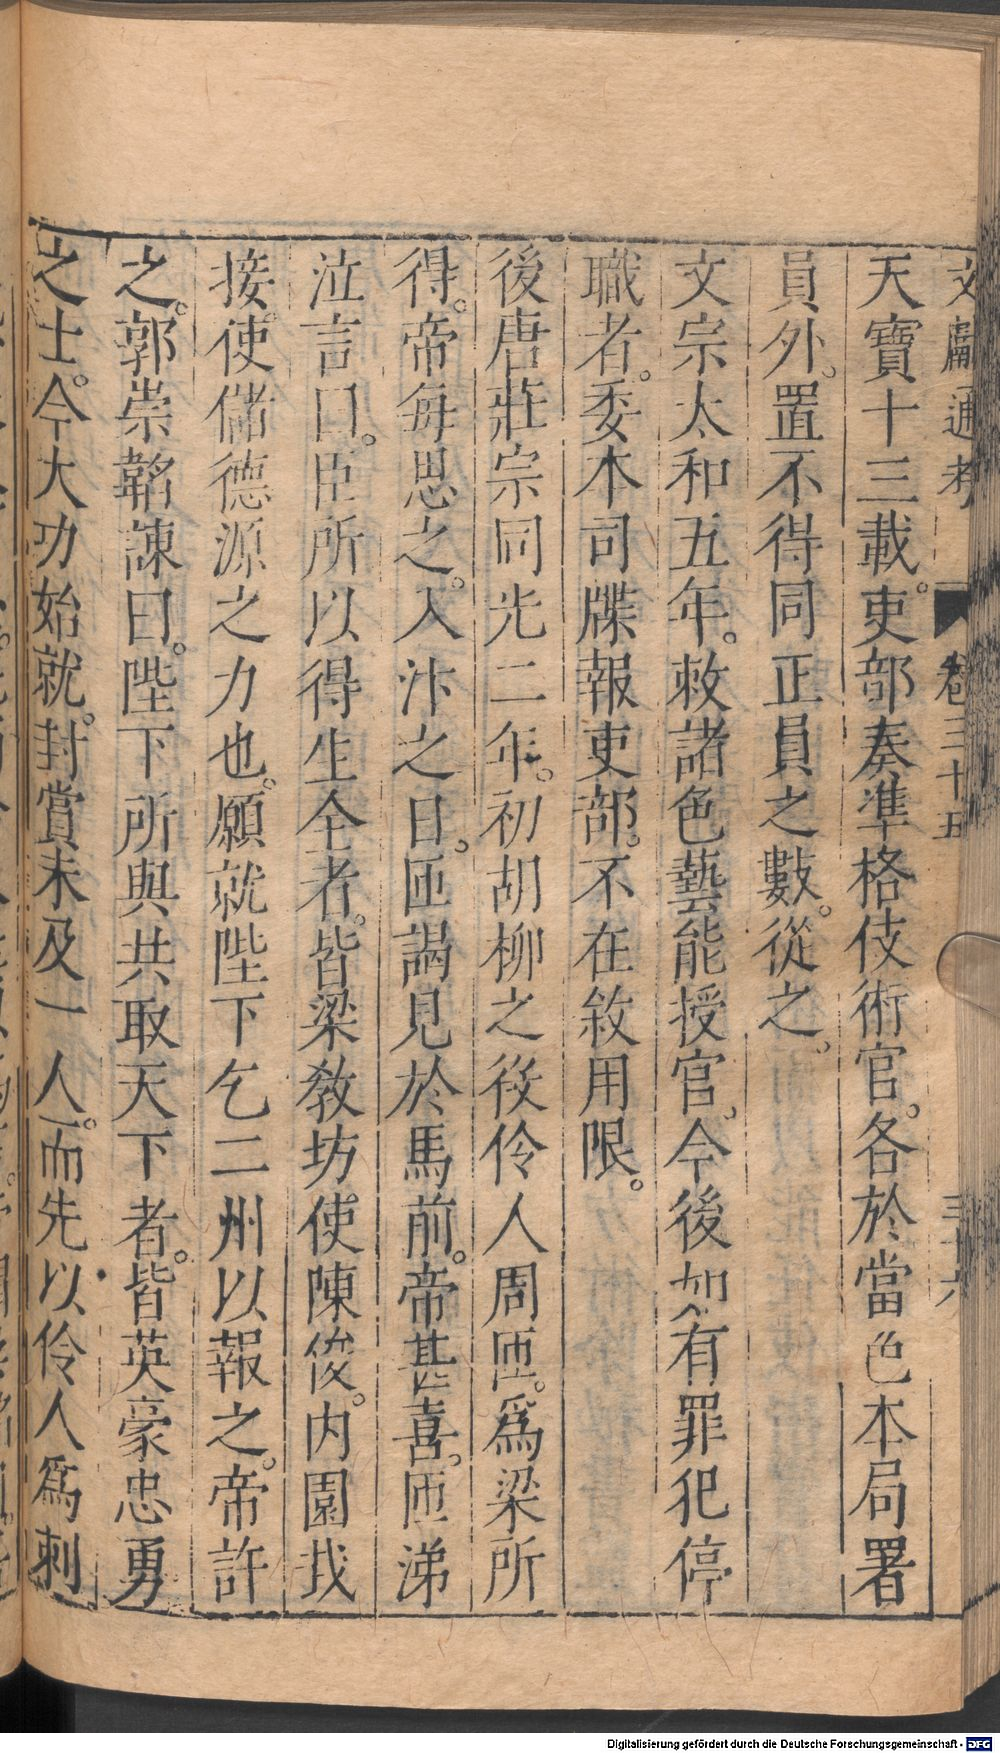 文獻通考 卷三十五 三十六
天寶十三載。吏部奏準格伎術官。各於當色本局署
員外。置不得同正員之數。從之。
文宗太和五年。敕諸色藝能授官。今後如有罪犯停
職者。委本司牒報吏部。不在敘用限。
後唐莊宗同光二年。初胡柳之役伶人周匝。爲梁所
得。帝每思之。入汴之日。匝謁見於馬前。帝甚喜。匝涕
泣言曰。臣所以得生全者。皆梁教坊使陳俊。內園栽
接使儲德源之力也。願就陛下乞二州以報之。帝許
之。郭崇韜諫曰。陛下所與共取天下者。皆英豪忠勇
之士。今大功始就。封賞未及一人。而先以伶人爲刺
Digitalisierung gefördert durch die Deutsche Forschungsgemeinschaft - DFG